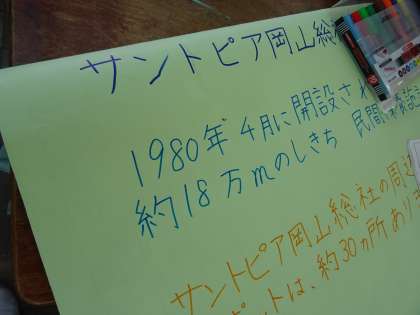 サントピア岡山総
1980年 4月に開設され
約18万mのしきち 民間
サントピア岡山総社の周辺
ポットは、約30ヵ所あり